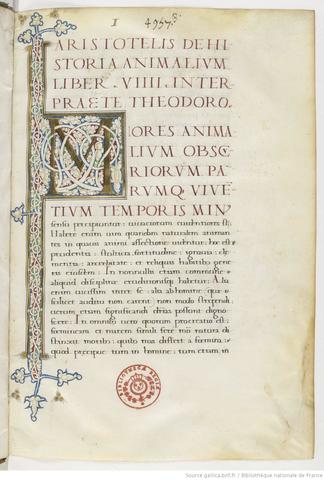 I 4957 8.
ARISTOTELIS DE HI
STORIA ANIMALIVM
LIBER . VIIII . INTER
PRAETE THEODORO.
MORES ANIMA
LIVM OBSCE
RIORVM PA
RVMQ VIVE
TIVM TEMPORIS MINꝰ
sensu percipiuntur: uiuaciorum euidentiores
Habere enim uim quandam naturalem animan
tes in quouis animi affectione uidentur: hoc est
prudentia, stultitia, fortitudine, ignauia, cle
mentia, acerbitate, et reliquis habitibus gene
ris eiusdem: In nonnullis etiam
aliquid disciplinae eruditionisque habetur:
uicissim inter se: alia ab homine: quae
scilicet auditu non carent non modo
uerum etiam significandi
scere: In omnibus uero quorum procreatio est:
foeminam et marem simili fere modo natura
stinxit moribus: quibus mas differt a foemina:
quod precipue tum in homine: tum etiam in
BIBLIOTHECA REGIA
Source gallica.bnf.fr / Bibliothèque nationale de France